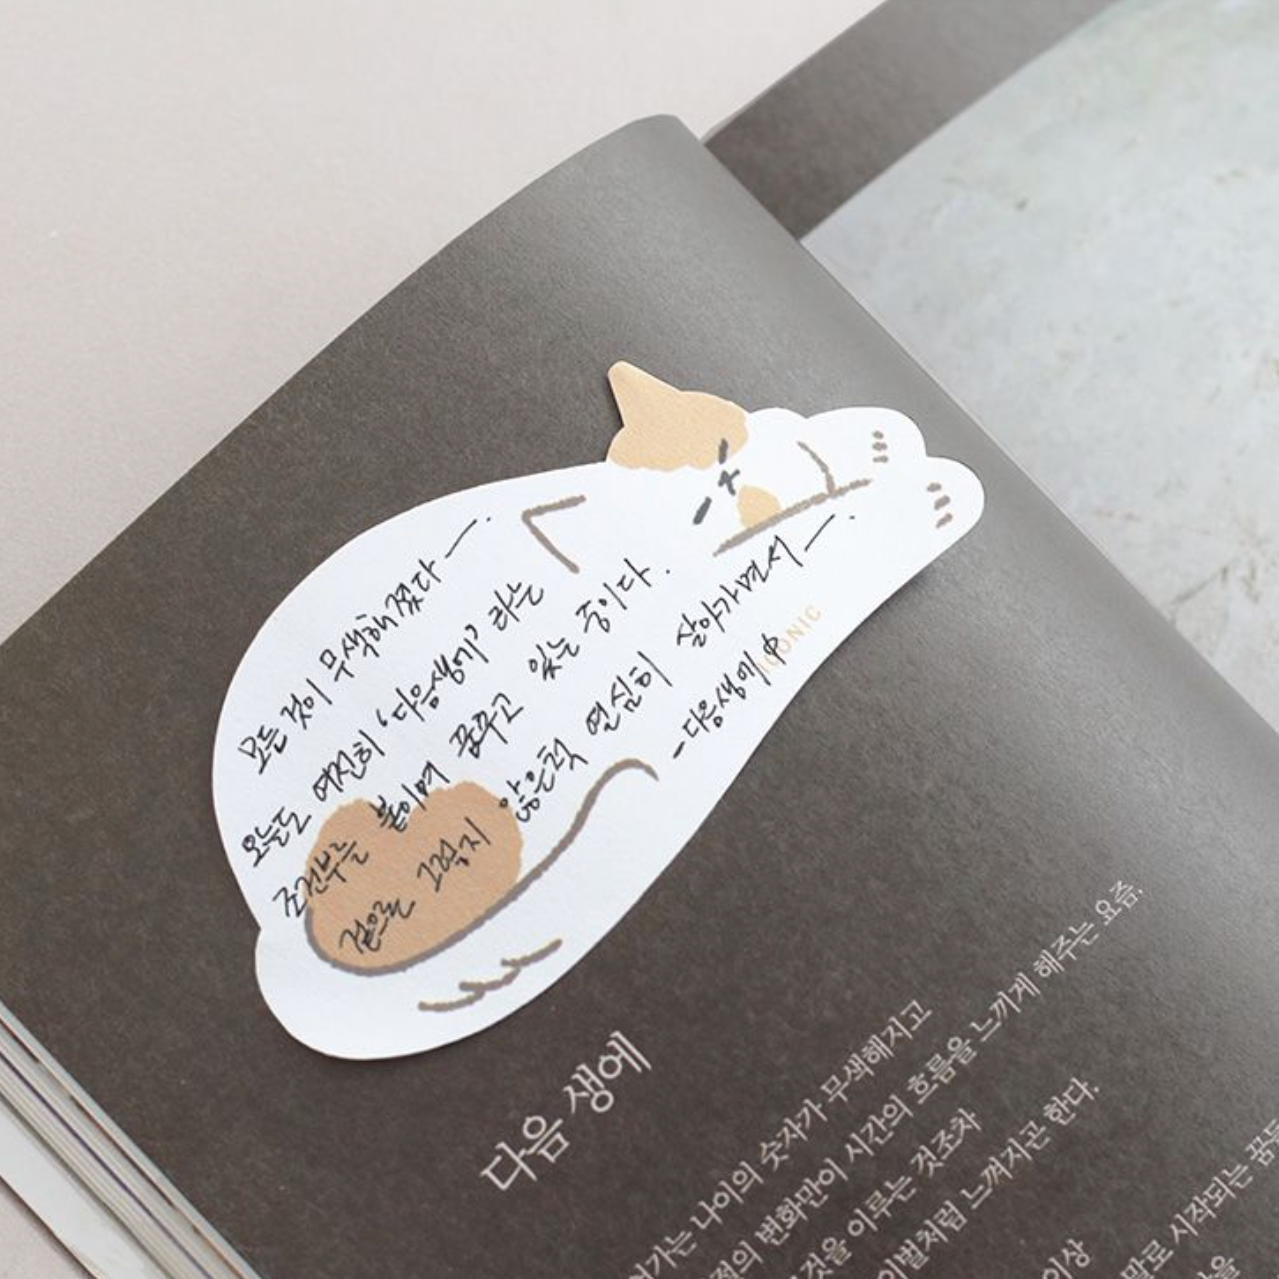 모든 것이 무색해졌다 —.
오늘도 여전히 '다음생에' 라는
조건부를 붙이며 꿈꾸고 있는 중이다.
겉으론 그렇지 않은척 열심히 살아가면서 —.
- 다음생에 中
ICONIC
다음 생에
가는 나이의 숫자가 무색해지고
변화만이 시간의 흐름을 느끼게 해주는 요즘,
것을 이루는 것조차
이별처럼 느껴지곤 한다.
이상
만로 시작되는